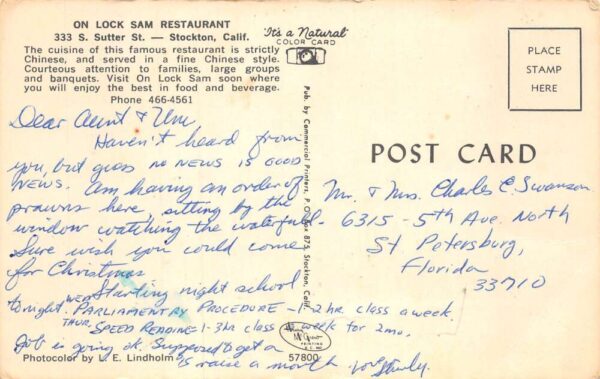 ON LOCK SAM RESTAURANT
333 S. Sutter St. — Stockton, Calif.
The cuisine of this famous restaurant is strictly
Chinese, and served in a fine Chinese style.
Courteous attention to families, large groups
and banquets. Visit On Lock Sam soon where
you will enjoy the best in food and beverage.
Phone 466-4561
"It's a Natural"
COLOR CARD
PLACE
STAMP
HERE
Pub. by Commercial Printers, P. O. Box 873, Stockton, Calif.
POST CARD
Dear Aunt &
Haven't heard from
you, but guess no NEWS is GOOD
NEWS. Am having an order of
prawns here, sitting by the
window watching the waterfall.
Sure wish you could come
for Christmas
Starting night school
tonight. WED PARLIAMENTARY PROCEDURE - 1-2 hr class a week.
THUR. SPEED READING - 1-3 hr class week for 2 mo.
Job is going ok. Supposed to get a
raise a month.
Mr. & Mrs. Charles E. Swanson
6315 - 5th Ave. North
St Petersburg,
Florida
33710
Photocolor by L. E. Lindholm
57800